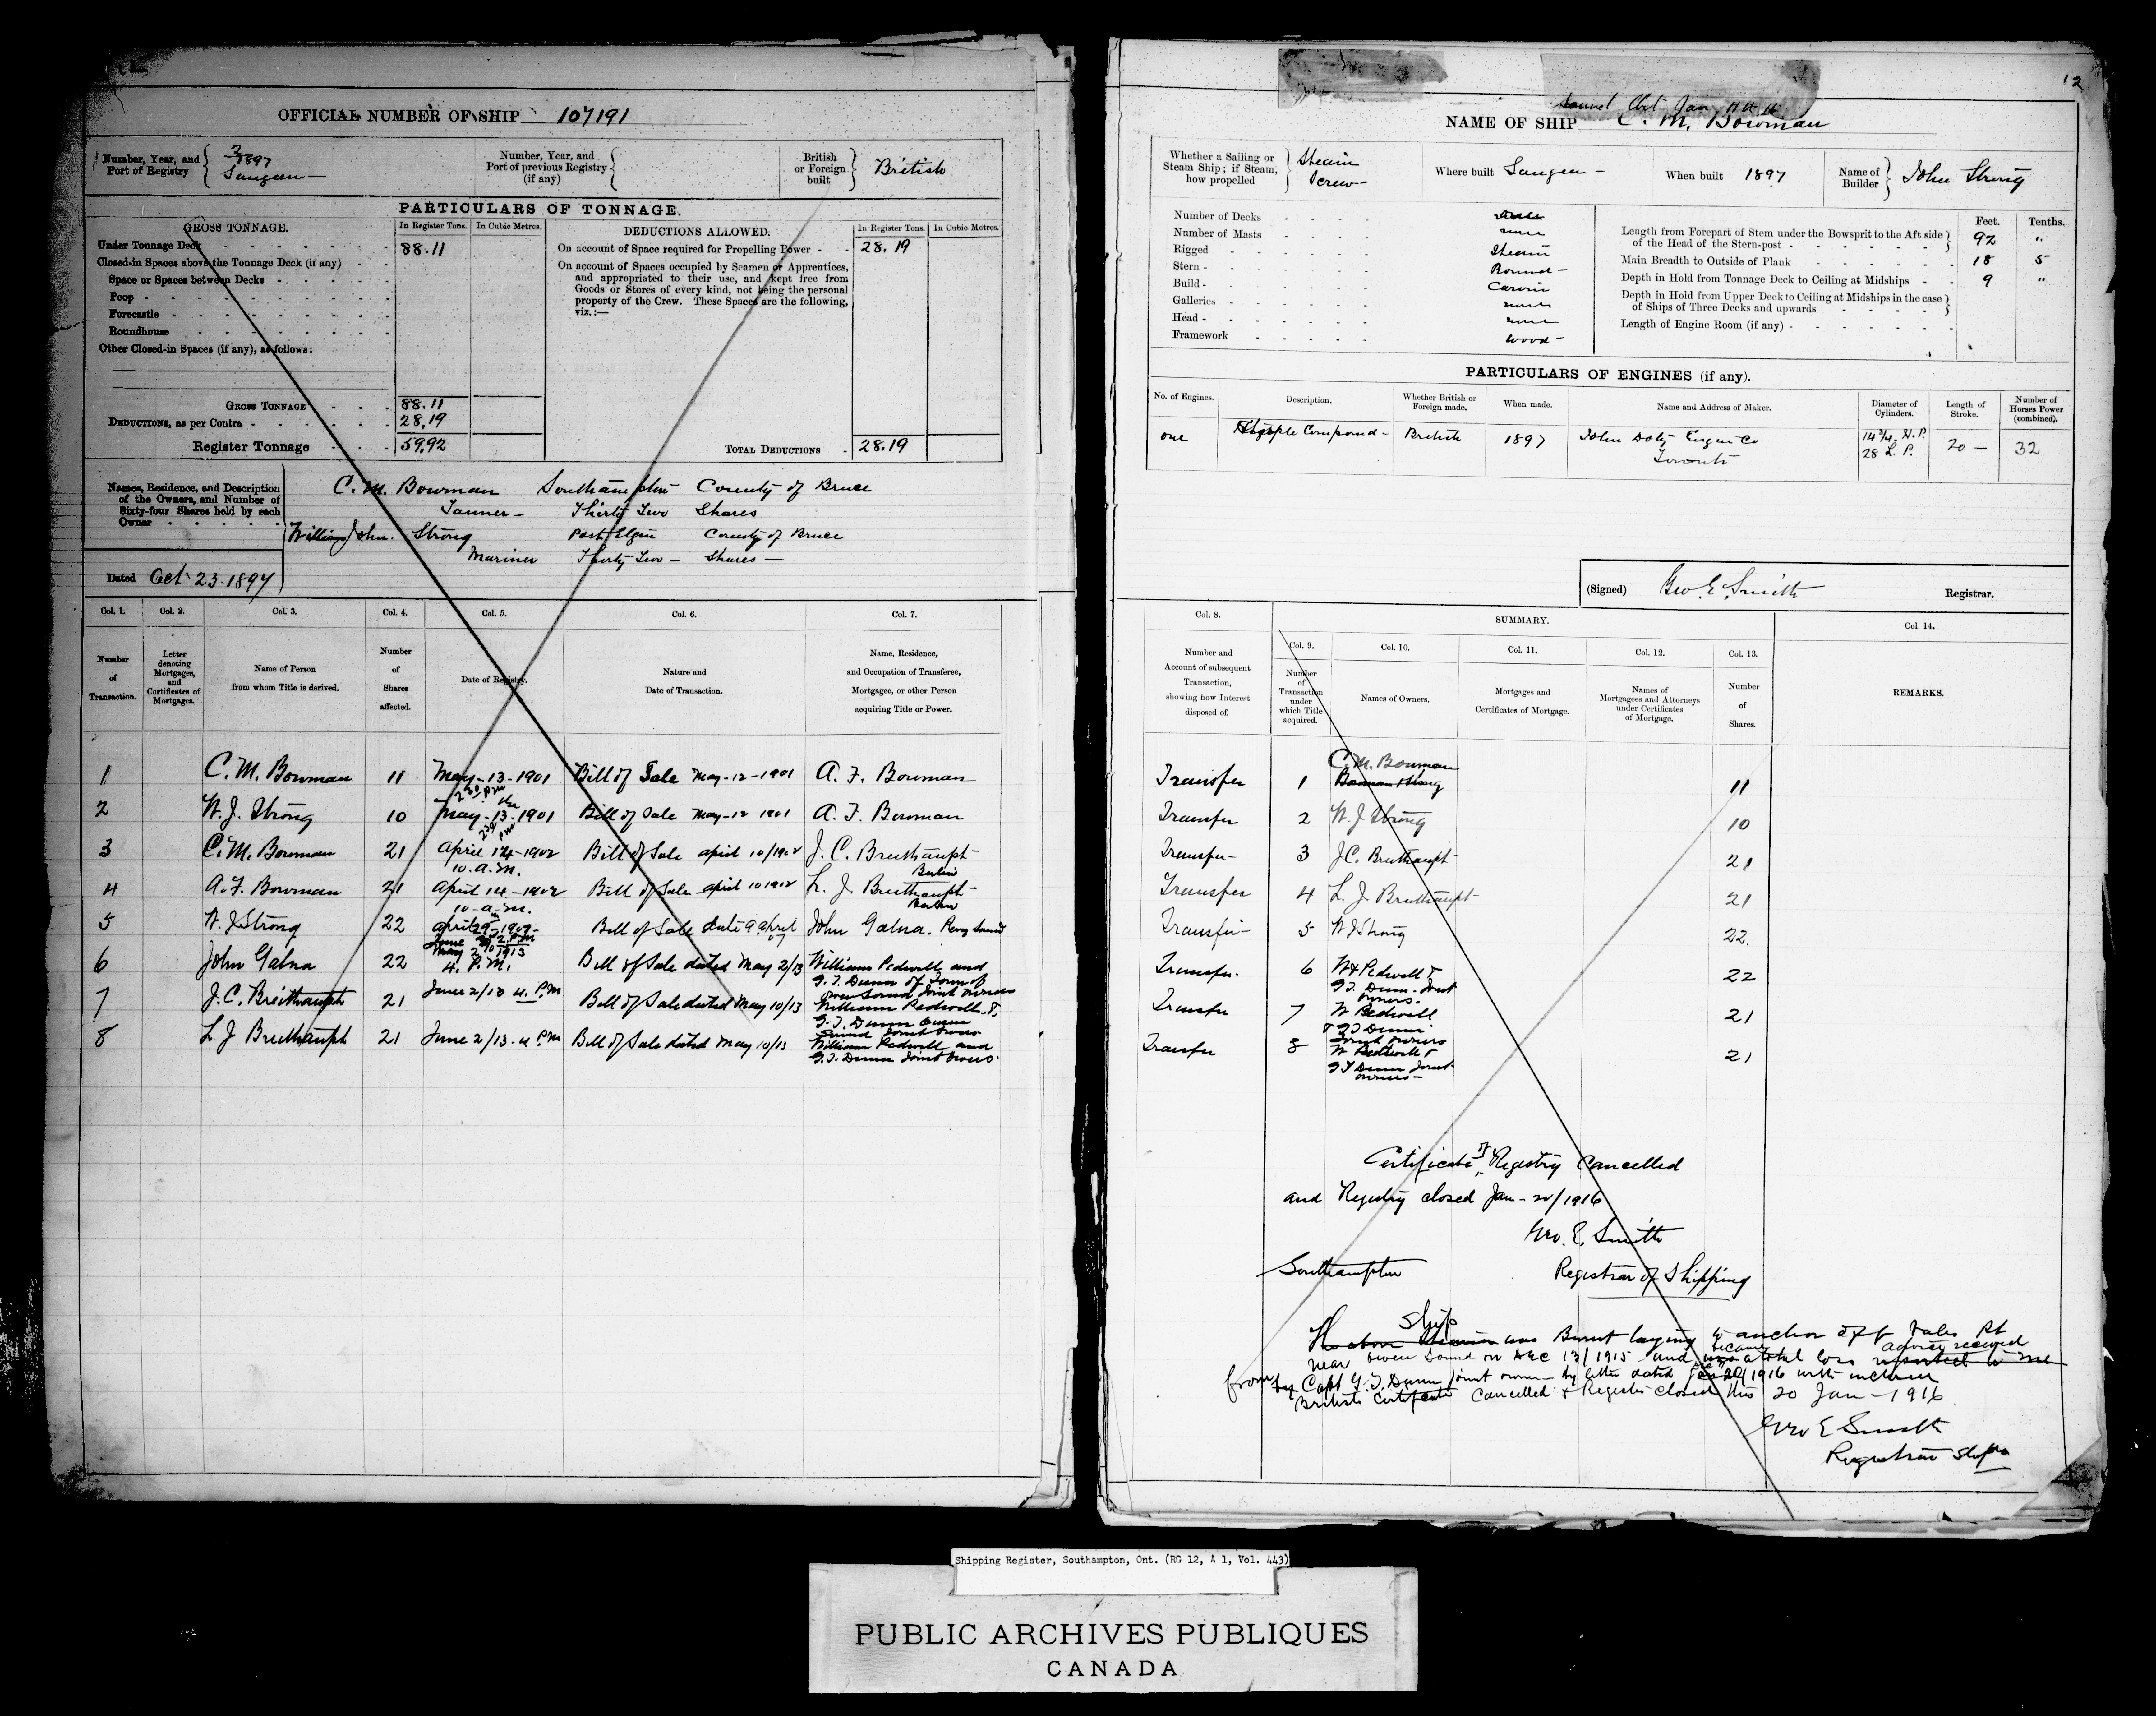 OFFICIAL NUMBER OF SHIP 107191
Number, Year, and Port of Registry 2 1897 Saugeen
Number, Year, and Port of previous Registry (if any)
British or Foreign built British
PARTICULARS OF TONNAGE.
GROSS TONNAGE. In Register Tons. In Cubic Metres.
Under Tonnage Deck 88.11
Closed-in Spaces above the Tonnage Deck (if any)
Space or Spaces between Decks
Poop
Forecastle
Roundhouse
Other Closed-in Spaces (if any), as follows:
GROSS TONNAGE 88.11
DEDUCTIONS, as per Contra 28.19
Register Tonnage 59.92
DEDUCTIONS ALLOWED. In Register Tons. In Cubic Metres.
On account of Space required for Propelling Power 28.19
On account of Spaces occupied by Seamen or Apprentices,
and appropriated to their use, and kept free from
Goods or Stores of every kind, not being the personal
property of the Crew. These Spaces are the following,
viz.:—
TOTAL DEDUCTIONS 28.19
Names, Residence, and Description
of the Owners, and Number of
Sixty-four Shares held by each
Owner
C. M. Bowman Southampton County of Bruce
Tanner – Thirty Two Shares
William John Strong Port Elgin County of Bruce
Mariner Thirty Two – Shares –
Dated Oct 23 1897
Col. 1. Col. 2. Col. 3. Col. 4. Col. 5. Col. 6. Col. 7.
Number of Transaction.
Letter denoting Mortgages, and Certificates of Mortgages.
Name of Person from whom Title is derived.
Number of Shares affected.
Date of Registry.
Nature and Date of Transaction.
Name, Residence, and Occupation of Transferee, Mortgagee, or other Person acquiring Title or Power.
1 C. M. Bowman 11 May-13-1901 2 30 pm Bill of Sale May-12-1901 A. F. Bowman
2 W. J. Strong 10 May-13-1901 2 30 pm Bill of Sale May-12 1901 A. F. Bowman
3 C. M. Bowman 21 April 14-1902 10.a.m. Bill of Sale april 10/1902 J. C. Breithaupt Berlin
4 A. F. Bowman 21 April 14-1902 10-a-m. Bill of Sale april 10 1902 L. J. Breithaupt Berlin
5 W. J Strong 22 april 29 1907 2.P.M Bill of Sale date 9 april 07 John Galna. Parry Sound
6 John Galna 22 June 2/1913 4. P.M. Bill of Sale dated May 2/13 William Pedwell and
G. T. Dunn of Town of
Owen Sound Joint Owners
7 J. C. Breithaupt 21 June 2/13 4. P.M Bill of Sale dated May 10/13 William Pedwell &
G. T. Dunn Owen
Sound Joint Owners
8 L J Breithaupt 21 June 2/13 - 4 P.M Bill of Sale dated May 10/13 William Pedwell and
G. T. Dunn Joint Owners
12
NAME OF SHIP C. M. Bowman
Whether a Sailing or Steam Ship; if Steam, how propelled Steam Screw
Where built Saugeen
When built 1897
Name of Builder John Strong
Number of Decks
Number of Masts none
Rigged Steam
Stern Round
Build Carvin
Galleries none
Head none
Framework wood
Feet. Tenths.
Length from Forepart of Stem under the Bowsprit to the Aft side
of the Head of the Stern-post 92 "
Main Breadth to Outside of Plank 18 5
Depth in Hold from Tonnage Deck to Ceiling at Midships 9 "
Depth in Hold from Upper Deck to Ceiling at Midships in the case
of Ships of Three Decks and upwards
Length of Engine Room (if any)
PARTICULARS OF ENGINES (if any).
No. of Engines. Description. Whether British or Foreign made. When made. Name and Address of Maker. Diameter of Cylinders. Length of Stroke. Number of Horses Power (combined).
one Compound British 1897 John Doty Engine Co Toronto 14 3/4 H.P. 28 L.P. 20 – 32
(Signed) Geo. E. Smith Registrar.
Col. 8. SUMMARY. Col. 14.
Col. 9. Col. 10. Col. 11. Col. 12. Col. 13.
Number and Account of subsequent Transaction, showing how Interest disposed of.
Number of Transaction under which Title acquired.
Names of Owners.
Mortgages and Certificates of Mortgage.
Names of Mortgagees and Attorneys under Certificates of Mortgage.
Number of Shares.
REMARKS.
Transfer 1 C. M. Bowman 11
Transfer 2 W. J Strong 10
Transfer 3 J C. Breithaupt 21
Transfer 4 L. J Breithaupt 21
Transfer 5 W J Strong 22.
Transfer 6 Wm Pedwell & G T. Dunn - Joint owners. 22
Transfer 7 W Pedwell & G T Dunn Joint Owners 21
Transfer 8 W Pedwell & G T Dunn Joint owners 21
Certificate of Registry Cancelled
and Registry closed Jan - 20/1916
Geo. E. Smith
Southampton Registrar of Shipping
Ship
The above Steamer was Burnt laying to anchor off Vales Pt
near Owen Sound on Dec 13/1915 - and became a total loss advice received
from Capt G. T. Dunn joint owner - by letter dated 1916 with
British Certificate Cancelled & Register closed this 20 Jan - 1916
Geo E Smith
Registrar Ship
Shipping Register, Southampton, Ont. (RG 12, A 1, Vol. 443)
PUBLIC ARCHIVES PUBLIQUES
CANADA